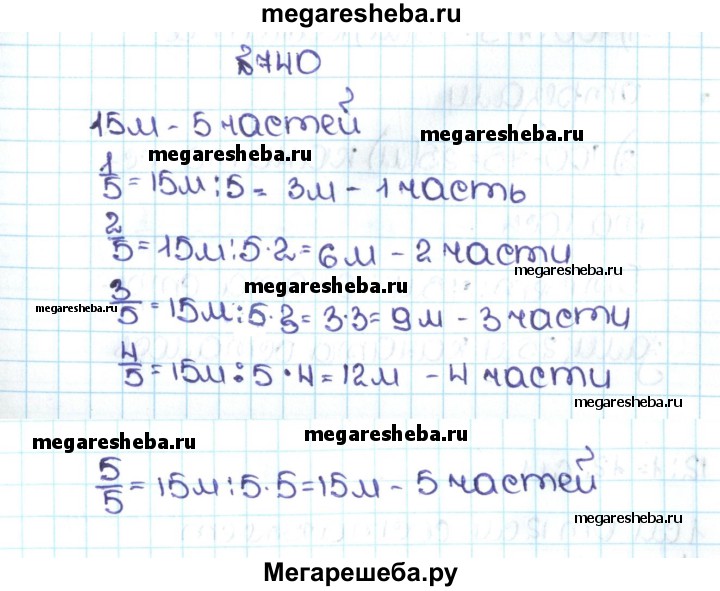 megaresheba.ru
№740
15м - 5 частей
megaresheba.ru
megaresheba.ru
1/5 = 15м : 5 = 3м - 1 часть
2/5 = 15м : 5 · 2 = 6м - 2 части
megaresheba.ru
megaresheba.ru
megaresheba.ru
3/5 = 15м : 5 · 3 = 3·3 = 9м - 3 части
4/5 = 15м : 5 · 4 = 12м - 4 части
megaresheba.ru
megaresheba.ru
megaresheba.ru
5/5 = 15м : 5 · 5 = 15м - 5 частей
megaresheba.ru
Мегарешеба.ру